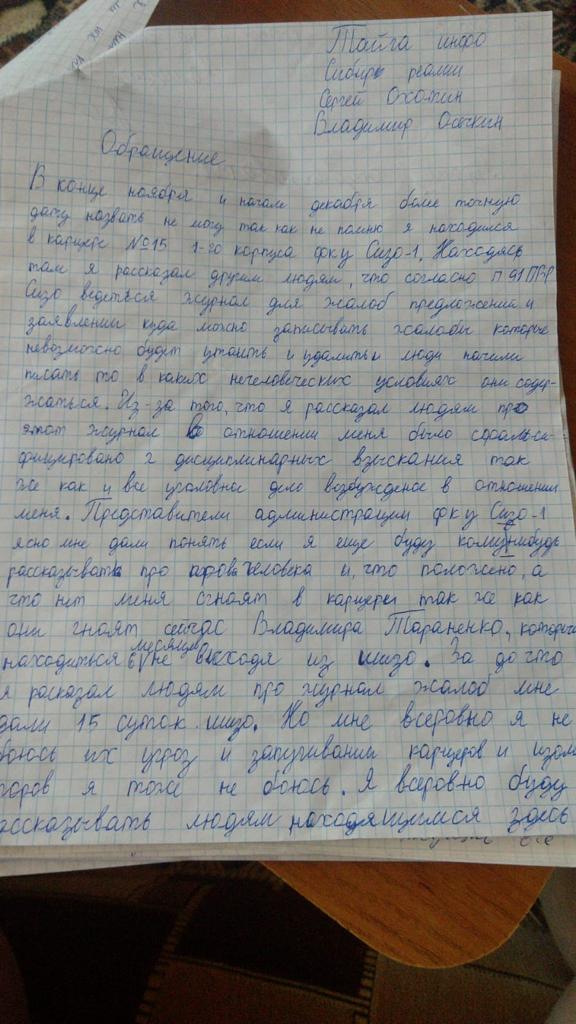 Тайга инфо
Сибирь реалии
Сергей Охотин
Владимир Осечкин
Обращение
В конце ноября и начале декабря более точную
дату назвать не могу так как не помню я находился
в карцере №15 1-го корпуса фку Сизо-1. Находясь
там я рассказал другим людям, что согласно п 91 ПВР
Сизо ведеться журнал для жалоб предложений и
заявлений куда можно записывать жалобы которые
невозможно будет утаить и удалить и люди начали
писать то в каких нечеловеческих условиях они содер-
жаться. Из-за того, что я рассказал людям про
этот журнал в отношении меня было сфальси-
фицировано 2 дисциплинарных взыскания так
же как и все уголовное дело возбужденое в отношении
меня. Представители администрации фку Сизо-1
ясно мне дали понять если я еще буду комунибудь
рассказывать про права человека и, что положено, а
что нет меня сгноят в карцере так же как
они гноят сейчас Владимира Тараненко, который
находиться 6 месяцев не выходя из шизо. За то что
я расказал людям про журнал жалоб мне
дали 15 суток шизо. Но мне всеровно я не
боюсь их угроз и запугивании карцеров и изоля
торов я тоже не боюсь. Я всеровно буду
рассказывать людям находящимся здесь